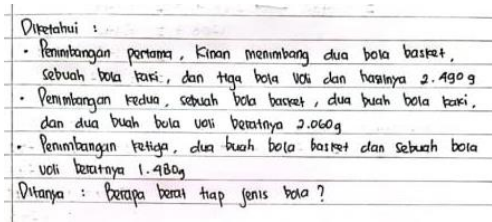 Diketahui :
• Penimbangan pertama, Kinan menimbang dua bola basket,
sebuah bola kaki, dan tiga bola voli dan hasilnya 2.490 g
• Penimbangan kedua, sebuah bola basket, dua buah bola kaki,
dan dua buah bola voli beratnya 2.060 g
• Penimbangan ketiga, dua buah bola basket dan sebuah bola
voli beratnya 1.480 g
Ditanya : Berapa berat tiap jenis bola ?